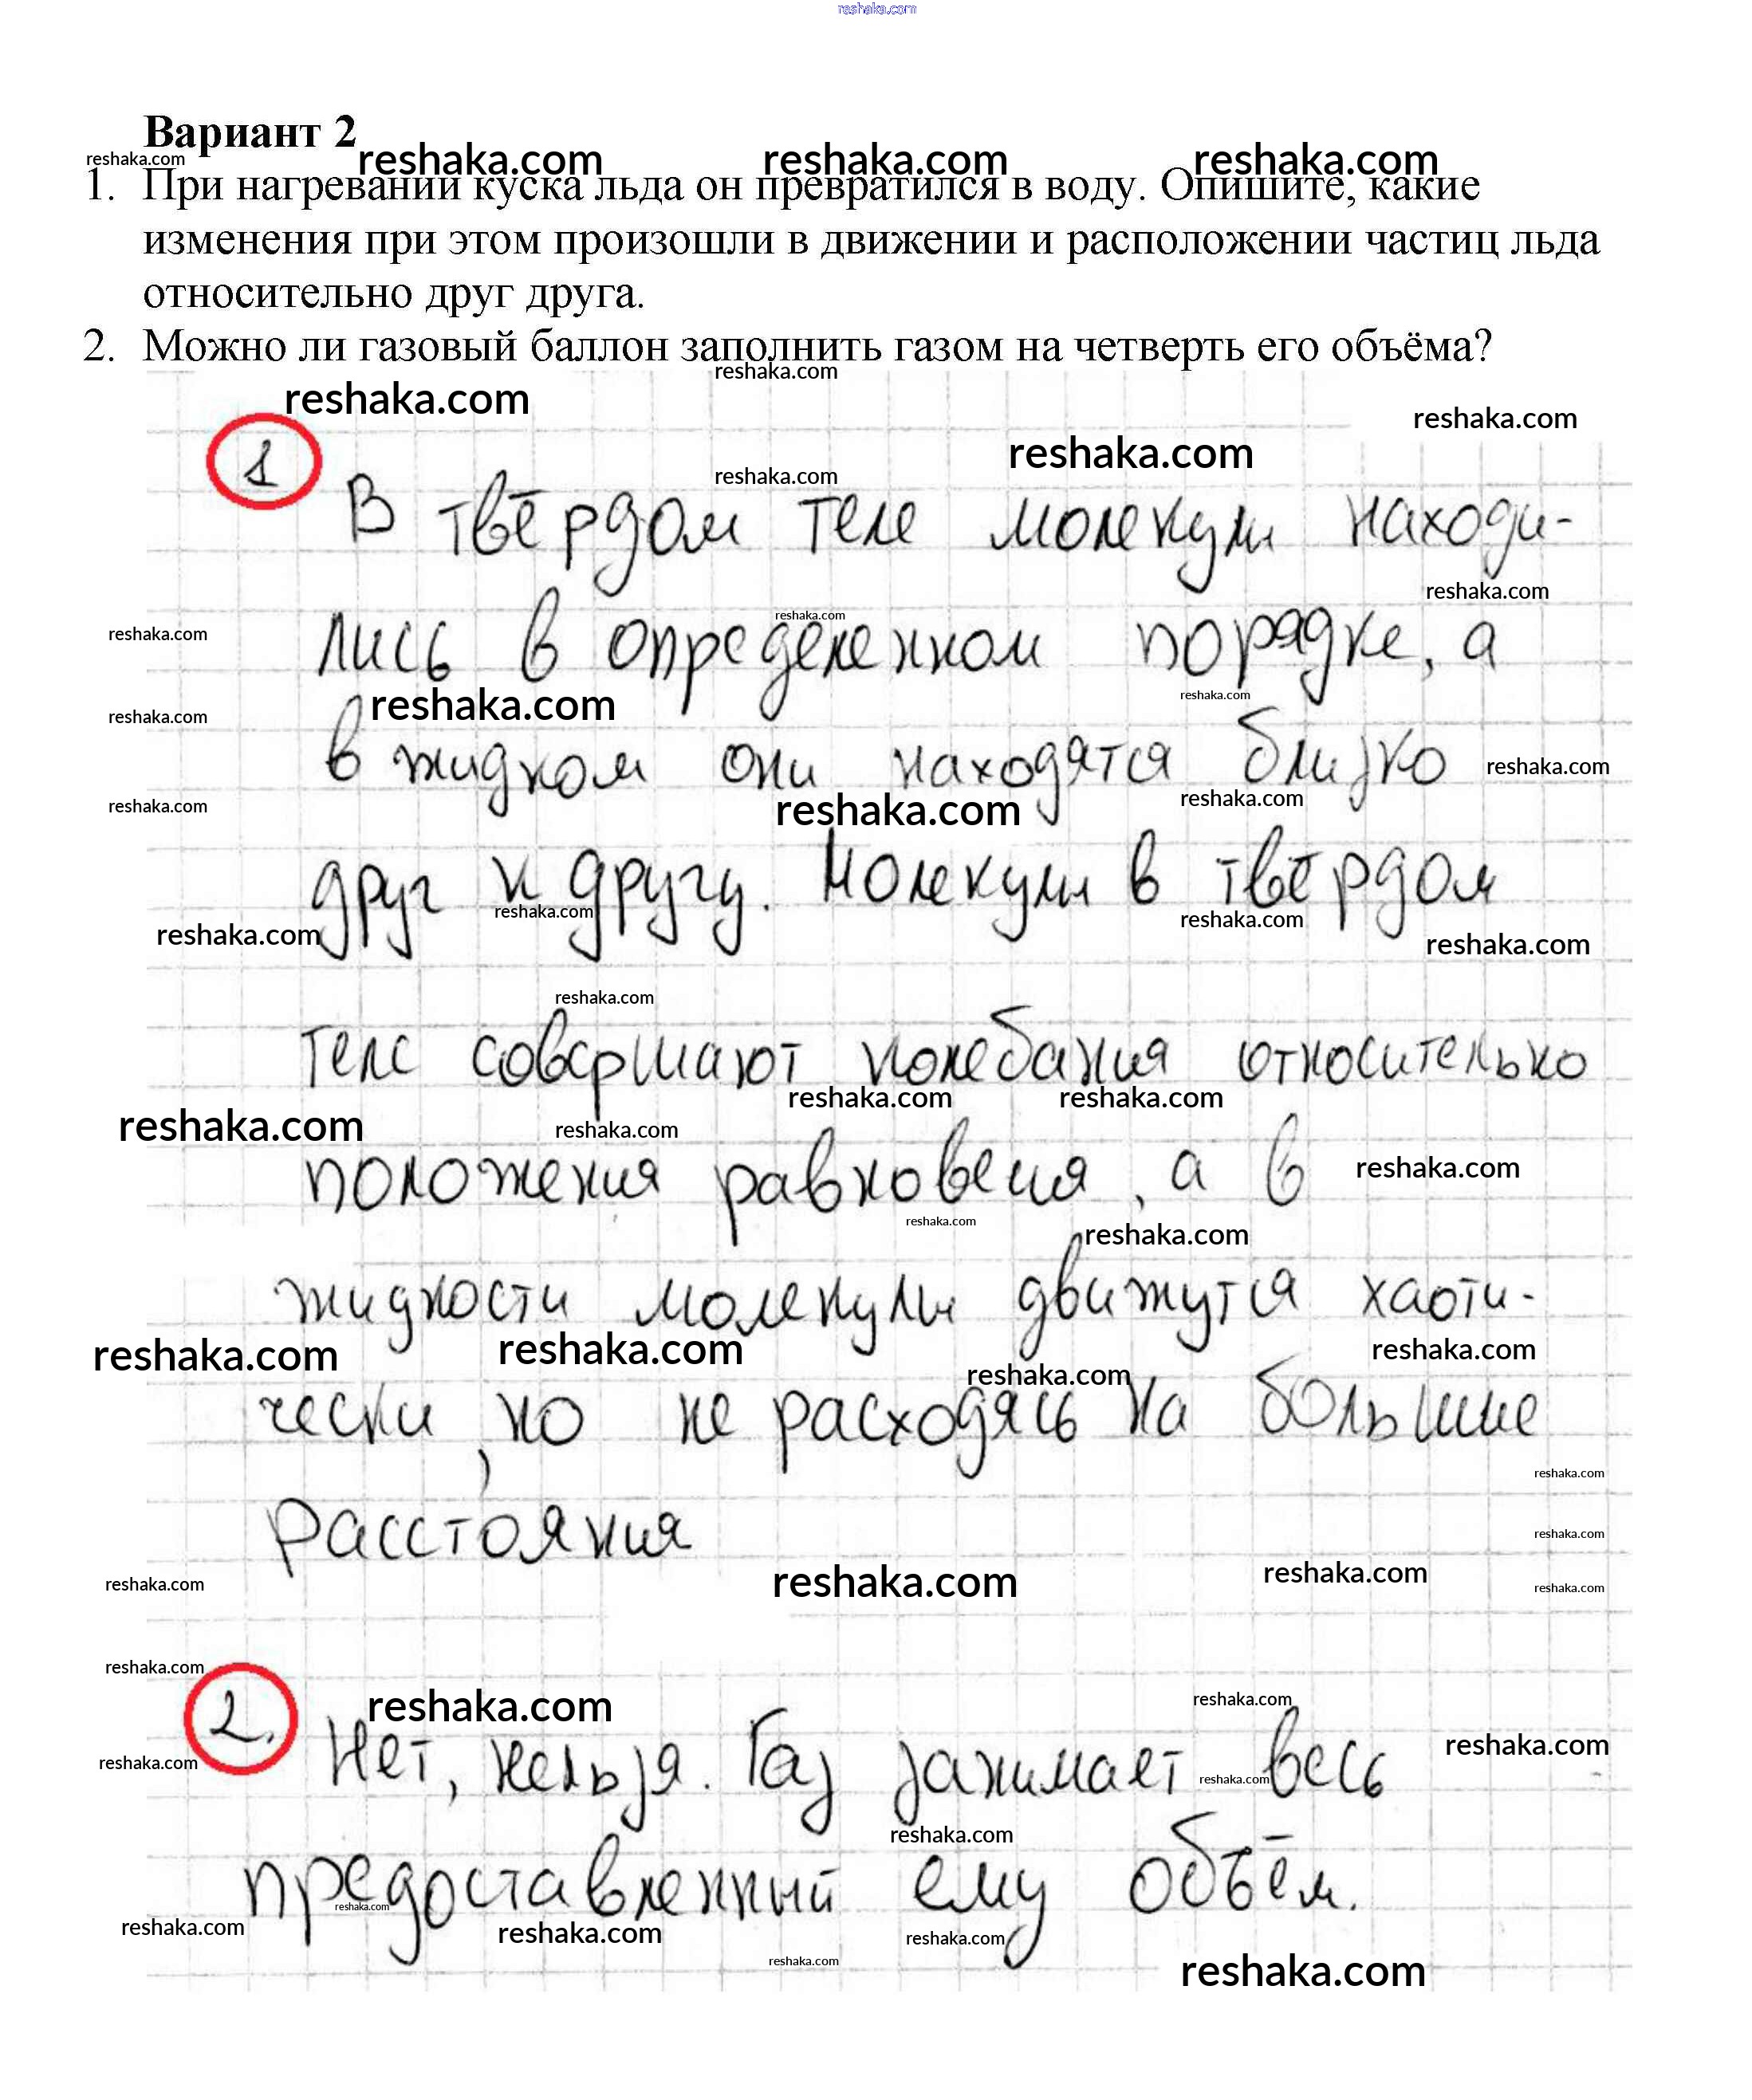 reshaka.com
Вариант 2
1. При нагревании куска льда он превратился в воду. Опишите, какие
изменения при этом произошли в движении и расположении частиц льда
относительно друг друга.
2. Можно ли газовый баллон заполнить газом на четверть его объёма?
1
В твёрдом теле молекулы находи-
лись в определенном порядке, а
в жидком они находятся близко
друг к другу. Молекулы в твёрдом
теле совершают колебания относительно
положения равновесия, а в
жидкости молекулы движутся хаоти-
чески, но не расходясь на большие
расстояния
2. Нет, нельзя. Газ занимает весь
предоставленный ему объём.